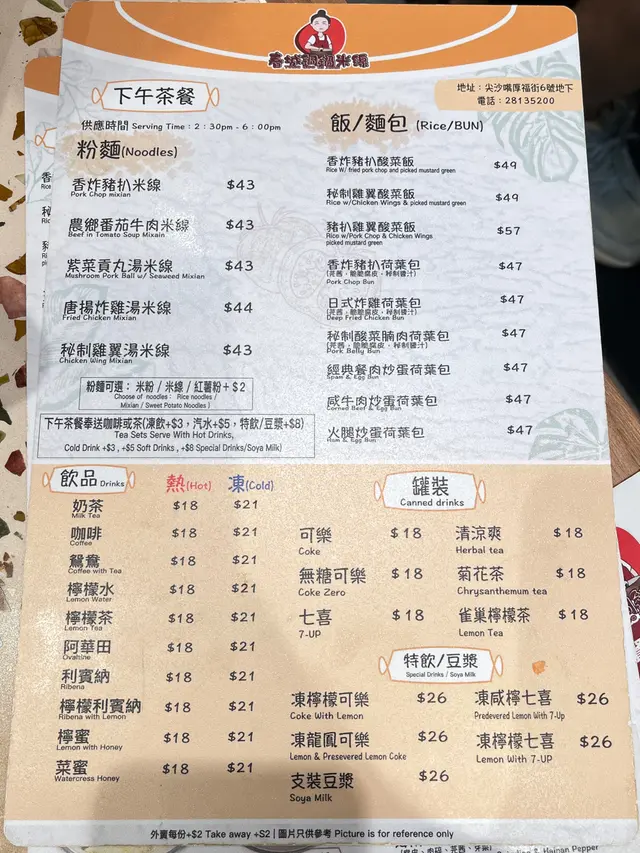 春城銅鍋米線
下午茶餐
地址：尖沙嘴厚福街6號地下
電話：28135200
供應時間 Serving Time：2：30pm - 6：00pm
粉麵(Noodles)
香炸豬扒米線 $43
Pork Chop mixian
農鄉番茄牛肉米線 $43
Beef in Tomato Soup Mixain
紫菜貢丸湯米線 $43
Mushroom Pork Ball w/ Seaweed Mixian
唐揚炸雞湯米線 $44
Fried Chicken Mixian
秘制雞翼湯米線 $43
Chicken Wing Mixian
粉麵可選： 米粉 / 米線 / 紅薯粉 + $2
Choose of noodles： Rice noodles /
Mixian / Sweet Potato Noodles )
下午茶餐奉送咖啡或茶(凍飲+$3，汽水+$5，特飲/豆漿+$8)
Tea Sets Serve With Hot Drinks,
Cold Drink +$3 , +$5 Soft Drinks , +$8 Special Drinks/Soya Milk)
飯/麵包 (Rice/BUN)
香炸豬扒酸菜飯 $49
Rice w/ fried pork chop and picked mustard green
秘制雞翼酸菜飯 $49
Rice w/Chicken Wings & picked mustard green
豬扒雞翼酸菜飯 $57
Rice w/Pork Chop & Chicken Wings
picked mustard green
香炸豬扒荷葉包 $47
(芫茜，脆脆腐皮，秘制醬汁)
Pork Chop Bun
日式炸雞荷葉包 $47
(芫茜，脆脆腐皮，秘制醬汁)
Deep Fried Chicken Bun
秘制酸菜腩肉荷葉包 $47
(芫茜，脆脆腐皮，秘制醬汁)
Pork Belly Bun
經典餐肉炒蛋荷葉包 $47
Spam & Egg Bun
咸牛肉炒蛋荷葉包 $47
Corned Beef & Egg Bun
火腿炒蛋荷葉包 $47
Ham & Egg Bun
飲品 Drinks 熱(Hot) 凍(Cold)
奶茶 $18 $21
Milk Tea
咖啡 $18 $21
Coffee
鴛鴦 $18 $21
Coffee with Tea
檸檬水 $18 $21
Lemon Water
檸檬茶 $18 $21
Lemon Tea
阿華田 $18 $21
Ovaltine
利賓納 $18 $21
Ribena
檸檬利賓納 $18 $21
Ribena with Lemon
檸蜜 $18 $21
Lemon with Honey
菜蜜 $18 $21
Watercress Honey
罐裝
Canned drinks
可樂 $18 清涼爽 $18
Coke Herbal tea
無糖可樂 $18 菊花茶 $18
Coke Zero Chrysanthemum tea
七喜 $18 雀巢檸檬茶 $18
7-UP Lemon Tea
特飲/豆漿
Special Drinks / Soya Milk
凍檸檬可樂 $26 凍咸檸七喜 $26
Coke With Lemon Predevered Lemon With 7-Up
凍龍鳳可樂 $26 凍檸檬七喜 $26
Lemon & Presevered Lemon Coke Lemon With 7-UP
支裝豆漿 $26
Soya Milk
外賣每份+$2 Take away +S2 | 圖片只供參考 Picture is for reference only